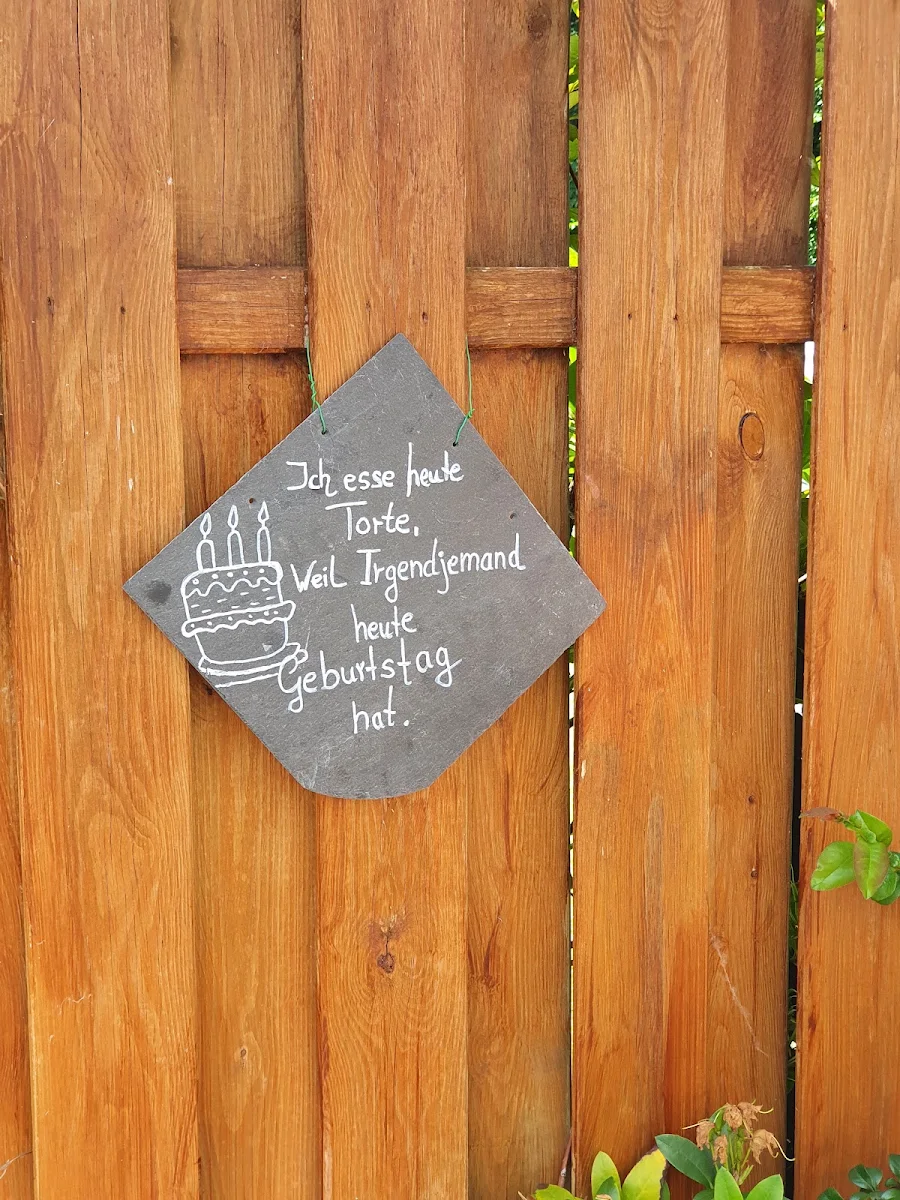 Ich esse heute
Torte,
Weil Irgendjemand
heute
Geburtstag
hat.